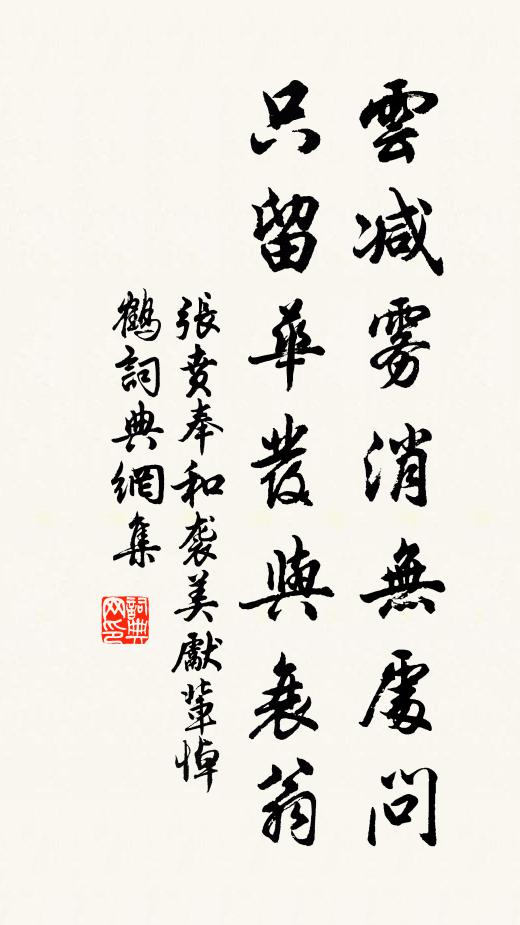 雲減霧消無處問
只留華發與衰翁
張賁奉和襲美獻輩悼
鶴詞典網集
詞典网印